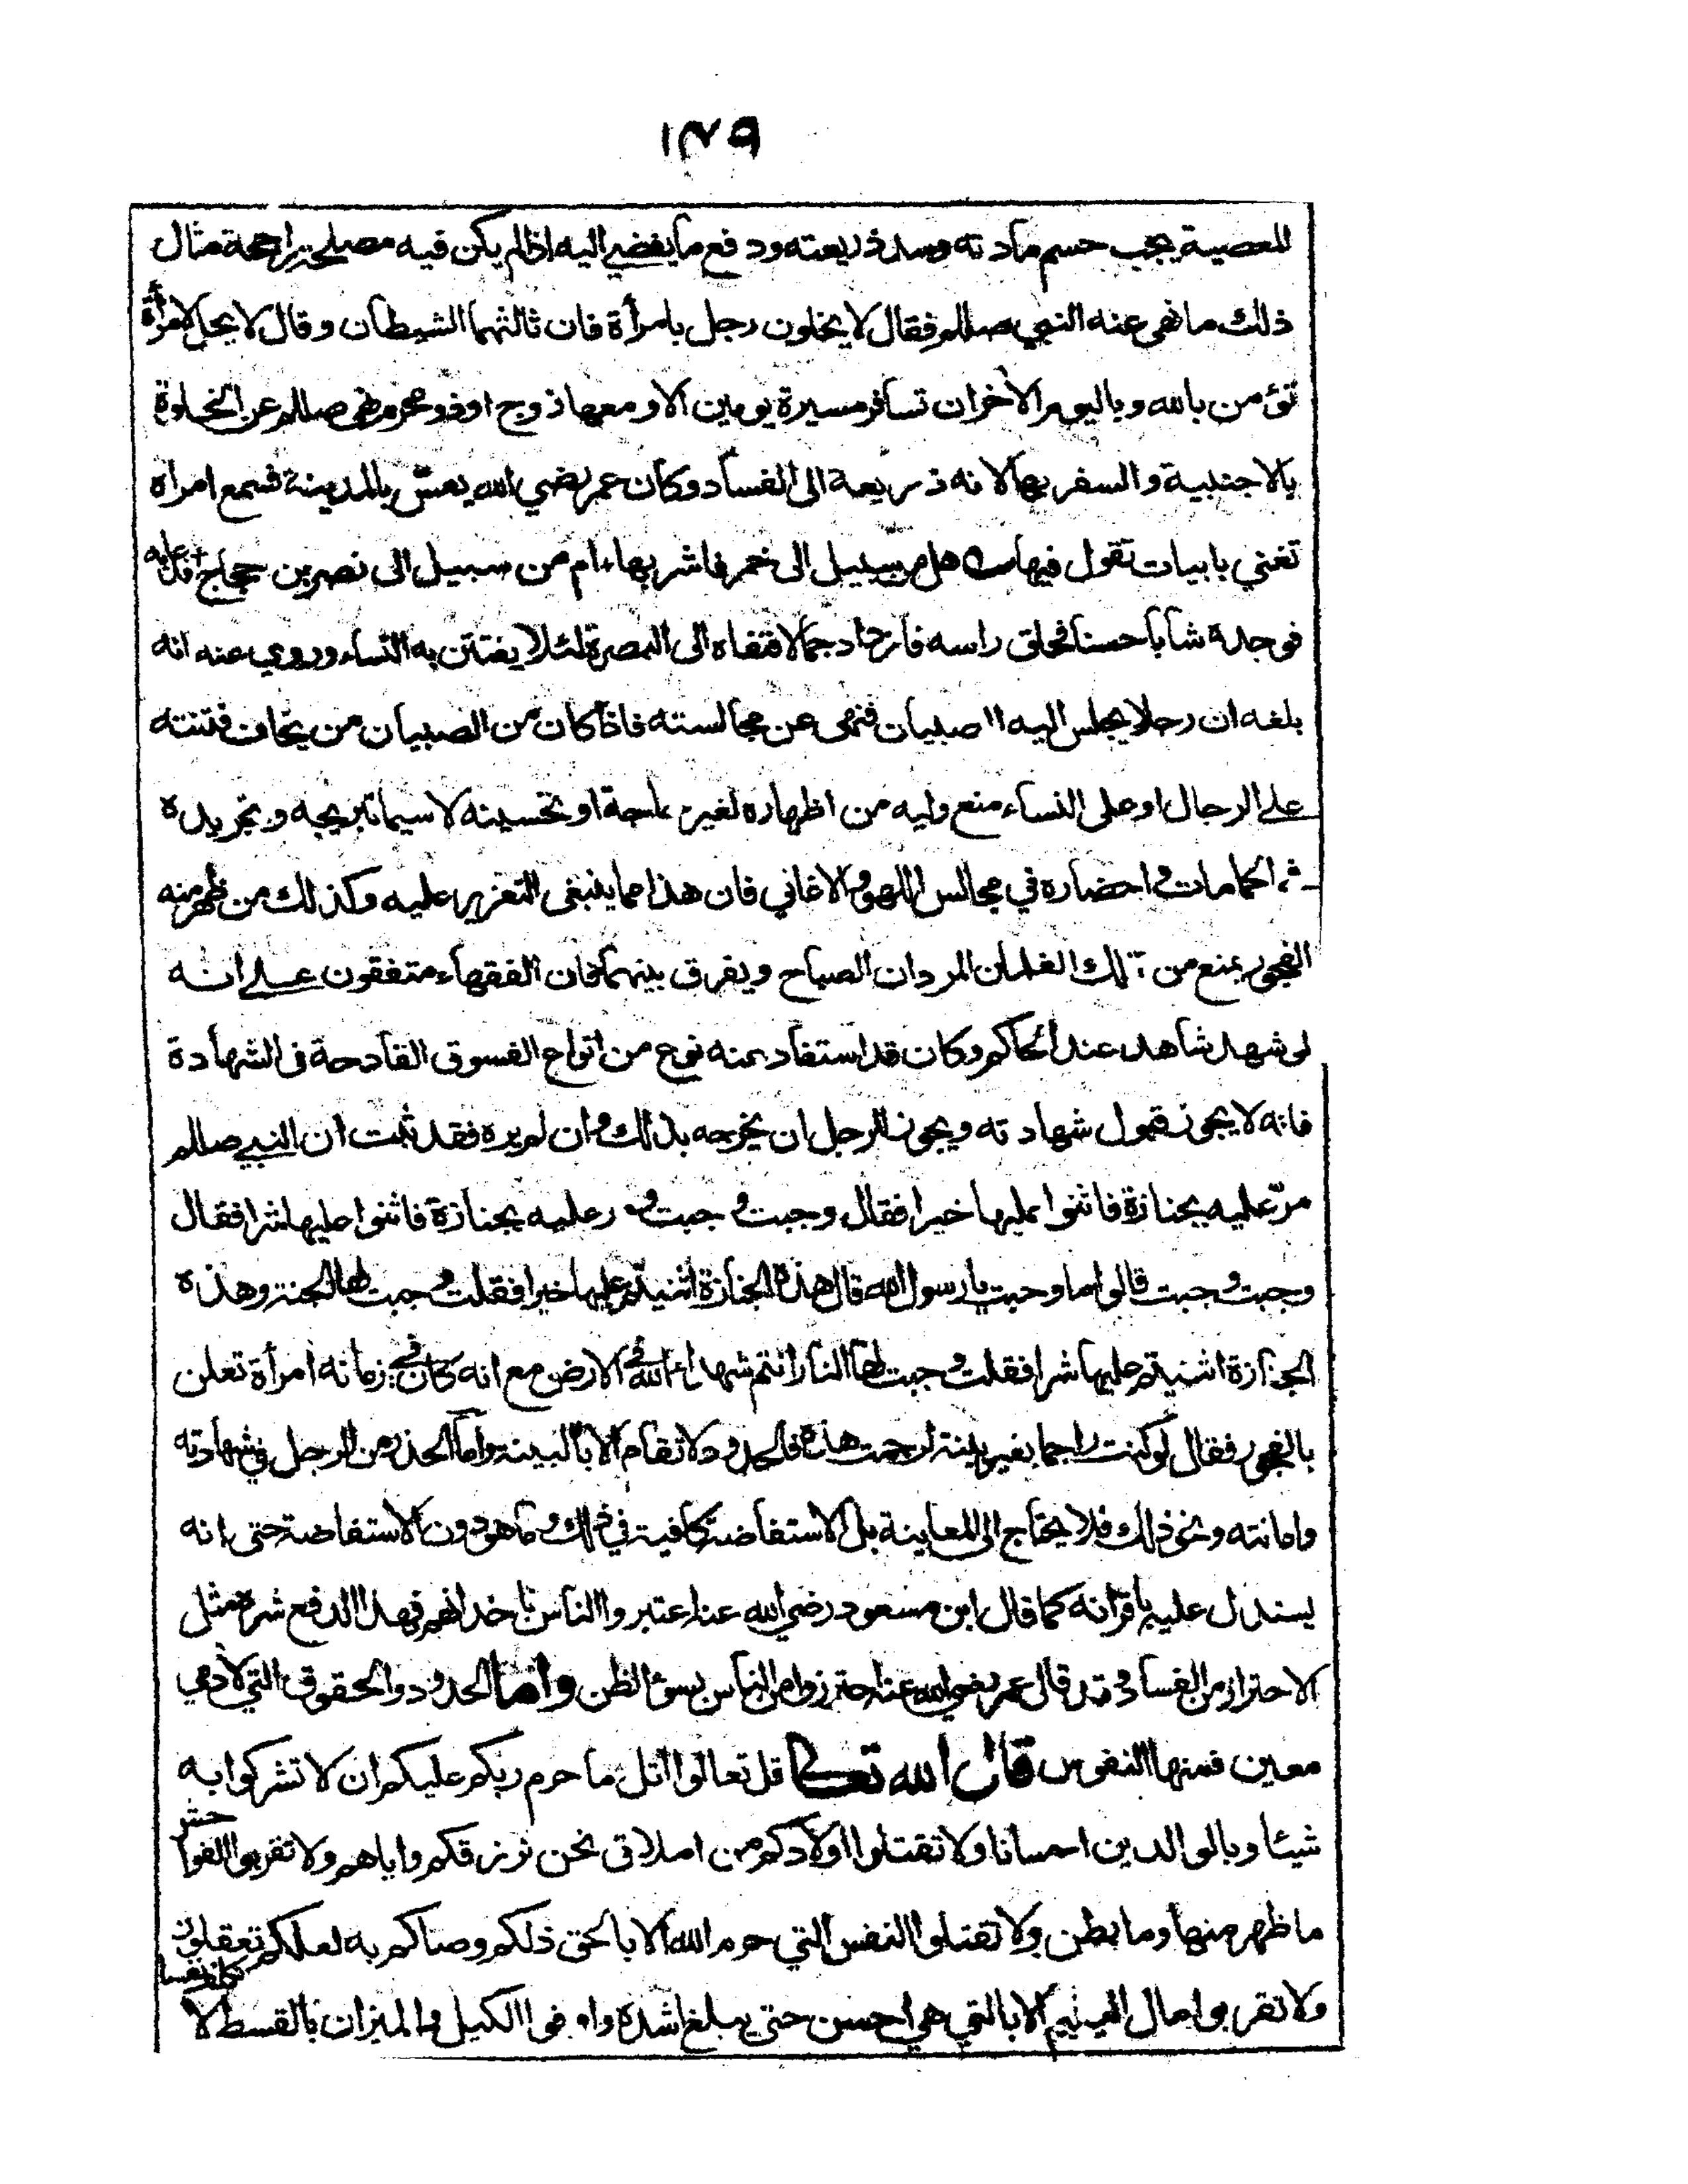 ١٣٩
للمعصية يجب حسم مادته وسد ذريعته ودفع ما يفضي اليه اذا لم يكن فيه مصلحة راجحة مثال
ذلك ما نهى عنه النبي صللم فقال لا يخلون رجل بامرأة فان ثالثهما الشيطان وقال لا يحل لامرأة
تؤمن بالله وباليوم الأخر ان تسافر مسيرة يومين الا ومعها زوج او ذو محرم نهى صللم عن الخلوة
بالاجنبية والسفر بها لانه ذريعة الى الفساد وكان عمر رضي الله يعسّ بالمدينة فسمع امراة
تغني بابيات تقول فيها هل من سبيل الى خمر فاشربها، ام من سبيل الى نصر بن حجاج
فوجدة شابا حسنا فحلق راسه فازداد جمالا فنفاه الى البصرة لئلا يفتتن به النساء وروي عنه انه
بلغه ان رجلا يجلس اليه الصبيان فنهى عن مجالسته فاذا كان من الصبيان من يخاف فتنته
على الرجال او على النساء منع وليه من اظهاره لغير حاجة او تحسينه لا سيما تبريجه وتجريده
في الحمامات واحضاره في مجالس اللهو والاغاني فان هذا مما ينبغي التعزير عليه وكذلك من ظهر منه
الفجور يمنع من تملك الغلمان المردان الصباح ويفرق بينهما فان الفقهاء متفقون على انه
لو شهد شاهد عند الحاكم وكان قد استفاد منه نوع من انواع الفسوق القادحة في الشهادة
فانه لا يجوز قبول شهادته ويجوز للرجل ان يخرجه بذلك وان لم يره فقد ثبت ان النبي صللم
مرّ عليه بجنازة فاثنوا عليها خيرا فقال وجبت وجبت و ر عليه بجنازة فاثنوا عليها شرا فقال
وجبت وجبت قالوا ما وجبت يا رسول الله قال هذه الجنازة اثنيتم عليها خيرا فقلت وجبت لها الجنة وهذه
الجنازة اثنيتم عليها شرا فقلت وجبت لها النار انتم شهداء الله في الارض مع انه كان في زمانه امرأة تعلن
بالفجور فقال لو كنت راجما بغير بينة لرجمت هذه فالحدود لا تقام الا بالبينة واما الحذر من الرجل في شهادته
وامانته ونحو ذلك فلا يحتاج الى المعاينة بل الاستفاضة كافية في ذلك وما هو دون الاستفاضة حتى انه
يستدل عليه باقرانه كما قال ابن مسعود رضي الله عنه اعتبروا الناس باخدانهم فهذا لدفع شره مثل
الاحتراز من الفساد وقد قال عمر رضي الله عنه احترزوا من الناس بسوء الظن واما الحدود والحقوق التي لادمي
معين فمنها النفوس قال الله تعالى قل تعالوا اتل ما حرم ربكم عليكم ان لا تشركوا به
شيئا وبالوالدين احسانا ولا تقتلوا اولادكم من املاق نحن نرزقكم واياهم ولا تقربوا الفواحش
ما ظهر منها وما بطن ولا تقتلوا النفس التي حرم الله الا بالحق ذلكم وصاكم به لعلكم تعقلون
ولا تقربوا مال اليتيم الا بالتي هي احسن حتى يبلغ اشده واوفوا الكيل والميزان بالقسط لا نكلف نفسا